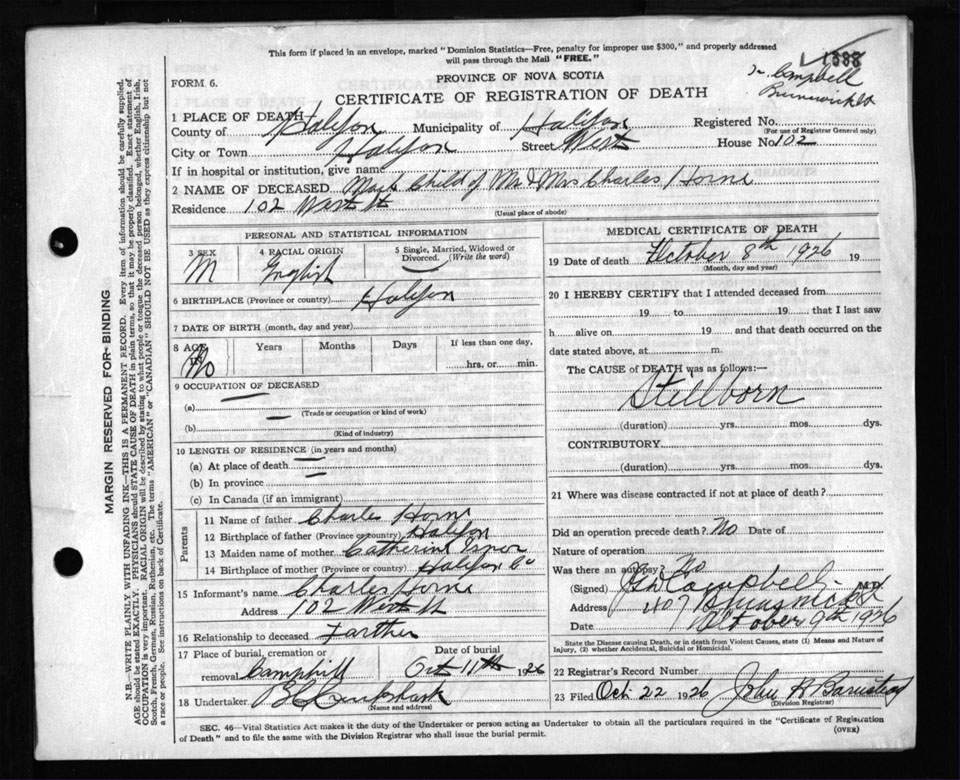 This form if placed in an envelope, marked "Dominion Statistics—Free, penalty for improper use $300," and properly addressed
will pass through the Mail "FREE."
1388
Dr. Campbell
FORM 6.
PROVINCE OF NOVA SCOTIA
Brunswick St
CERTIFICATE OF REGISTRATION OF DEATH
1 PLACE OF DEATH
County of Halifax Municipality of Halifax Registered No.
(For use of Registrar General only)
City or Town Halifax Street West House No. 102
If in hospital or institution, give name
2 NAME OF DECEASED Male Child of Mr & Mrs Charles Horne
Residence 102 West St
(Usual place of abode)
PERSONAL AND STATISTICAL INFORMATION
3 SEX 4 RACIAL ORIGIN 5 Single, Married, Widowed or
Divorced. (Write the word)
M English
6 BIRTHPLACE (Province or country) Halifax
7 DATE OF BIRTH (month, day and year)
8 AGE Years Months Days If less than one day,
hrs. or min.
9 OCCUPATION OF DECEASED
(a)
(Trade or occupation or kind of work)
(b)
(Kind of industry)
10 LENGTH OF RESIDENCE (in years and months)
(a) At place of death
(b) In province
(c) In Canada (if an immigrant)
Parents
11 Name of father Charles Horne
12 Birthplace of father (Province or country) Halifax
13 Maiden name of mother Catherine
14 Birthplace of mother (Province or country) Halifax Co
15 Informant's name Charles Horne
Address 102 West St
16 Relationship to deceased Farther
17 Place of burial, cremation or Date of burial
removal Camphill Oct 11th 1926
18 Undertaker
(Name and address)
MEDICAL CERTIFICATE OF DEATH
19 Date of death October 8th 1926 19
(Month, day and year)
20 I HEREBY CERTIFY that I attended deceased from
19 to 19 that I last saw
h alive on 19 and that death occurred on the
date stated above, at m.
The CAUSE of DEATH was as follows:—
Stillborn
(duration) yrs. mos. dys.
CONTRIBUTORY
(duration) yrs. mos. dys.
21 Where was disease contracted if not at place of death?
Did an operation precede death? No Date of
Nature of operation
Was there an autopsy? No
(Signed) Campbell M.D.
Address 407 Brunswick St
Date October 9th 1926
State the Disease causing Death, or in death from Violent Causes, state (1) Means and Nature of
Injury, (2) whether Accidental, Suicidal or Homicidal.
22 Registrar's Record Number
23 Filed Oct 22 1926 John R
(Division Registrar)
SEC. 46—Vital Statistics Act makes it the duty of the Undertaker or person acting as Undertaker to obtain all the particulars required in the "Certificate of Registration
of Death" and to file the same with the Division Registrar who shall issue the burial permit.
(OVER)
MARGIN RESERVED FOR BINDING
N.B.—WRITE PLAINLY WITH UNFADING INK—THIS IS A PERMANENT RECORD. Every item of information should be carefully supplied.
AGE should be stated EXACTLY. PHYSICIANS should STATE CAUSE OF DEATH in plain terms, so that it may be properly classified. Exact statement of
OCCUPATION is very important. RACIAL ORIGIN will be described by stating to what people or tongue the deceased person belonged, whether English, Irish,
Scotch, French, German, Russian, Ruthenian, etc. The terms "AMERICAN" or "CANADIAN" SHOULD NOT BE USED as they express citizenship but not
a race or people. See instructions on back of Certificate.